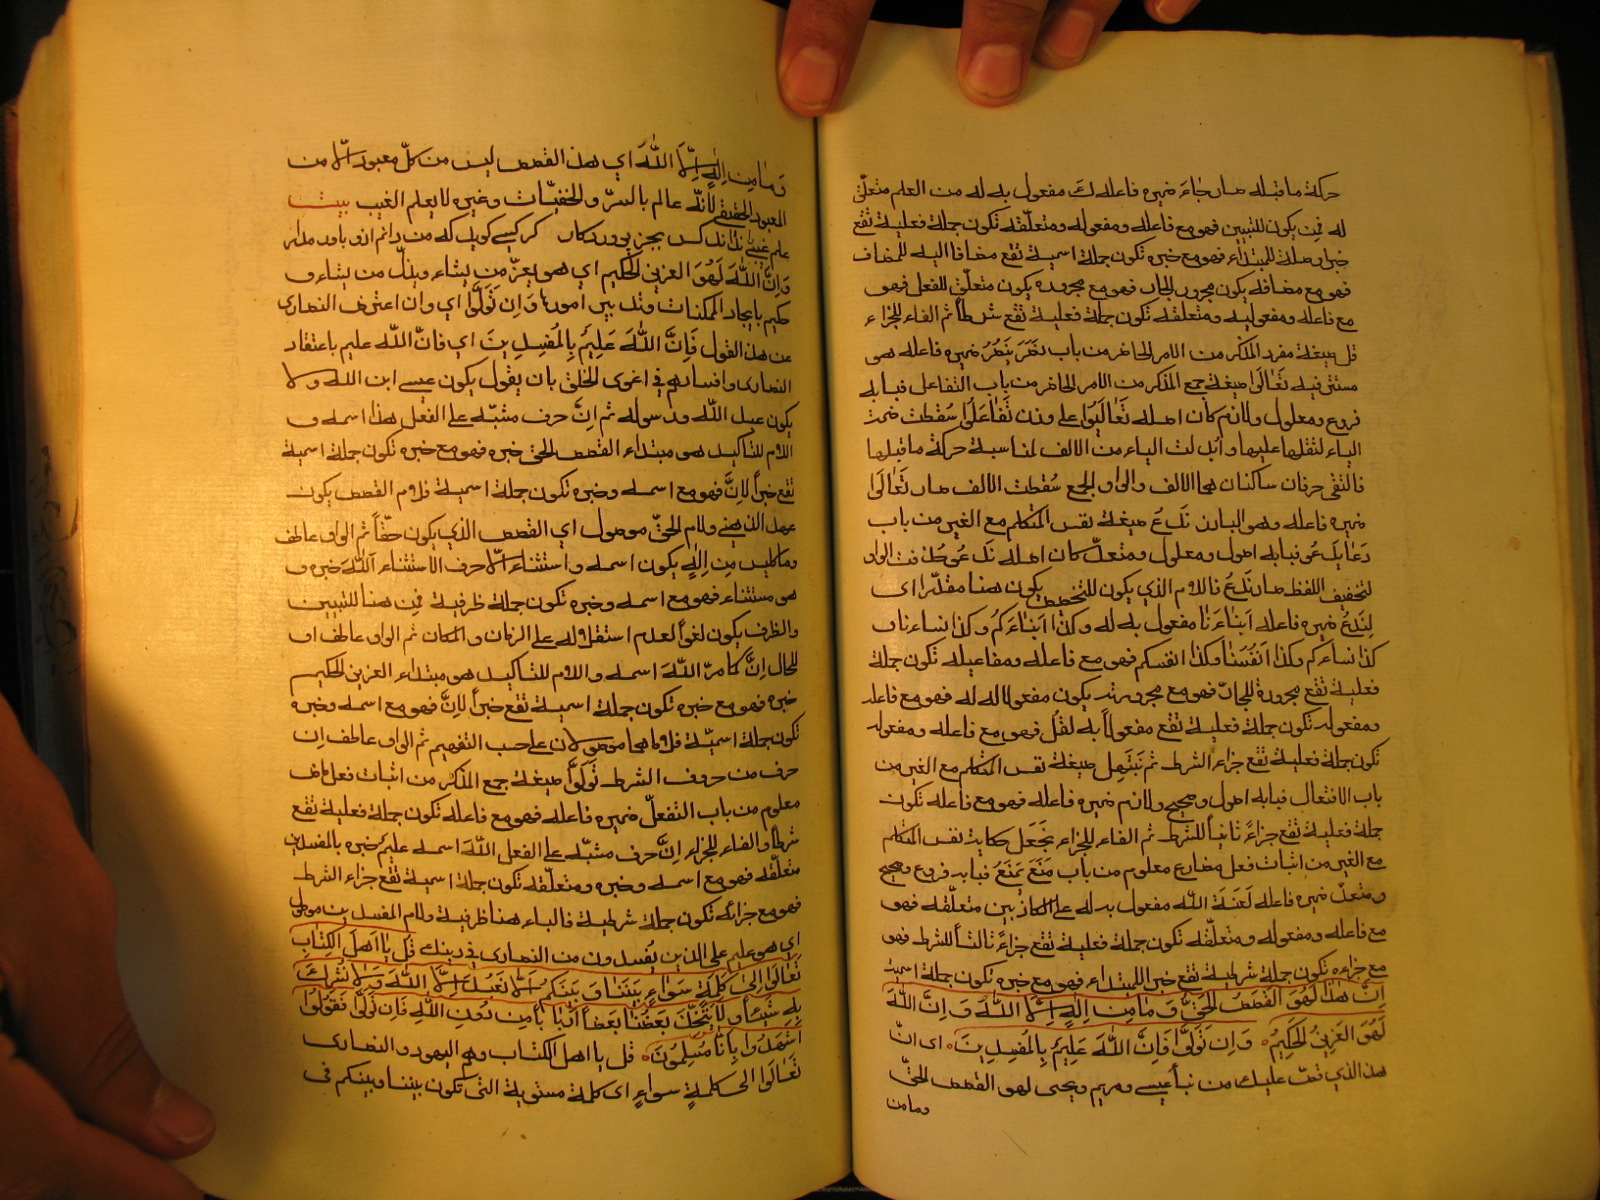 حركة ما قبله صار جَاءَ ضميره فاعله كَ مفعول به له من العلم متعلّق
له مِن يكون للتبيين فهو مع فاعله ومفعوله ومتعلّقه تكون جملة فعلية تقع
خبرا وصلة للمبتداء فهو مع خبره تكون جملة اسمية تقع مضافا اليه للمضاف
فهو مع مضافه يكون مجرور الجار فهو مع مجروره يكون متعلّق للفعل فهو
مع فاعله ومفعوليه ومتعلقه تكون جملة فعلية تقع شرطاً ثم الفاء للجزاء
قل صيغة مفرد المذكر من الامر الحاضر من باب نَصَرَ يَنصُرُ ضميره فاعله هو
مستتر فيه تَعَالَوا صيغة جمع المذكر من الامر الحاضر من باب التفاعل فبابه
فروع ومعلول ولازم كان اصله تَعَالَيُوا على وزن تَفَاعَلُوا سُقطت ضمة
الياء لثقلها عليها وابُدلت الياء من الالف لمناسبة حركة ما قبلها
فالتقى حرفان ساكنان هما الالف والواو الجمع سُقطت الالف صار تَعَالَوا
ضميره فاعله وهو البارز نَدعُ صيغة نفس المتكلم مع الغير من باب
دَعَا يَدعُو فبابه اصول ومعلول ومتعدّ كان اصله نَدعُو حُذفت الواو
لتخفيف اللفظ صار نَدعُ فاللام الذي يكون للتخصيص يكون هنا مقدّرا اى
لِنَدعُ ضميره فاعله اَبنَاءَنَا مفعول به له وكذا ابنَاءَكُم وكذا نساءنا و
كذا نساءكم وكذا اَنفُسَنَا وكذا انفسكم فهو مع فاعله ومفاعيله تكون جملة
فعلية تقع مجرورة للجارّ فهو مع مجروره يكون مفعولا له له فهو مع فاعله
ومفعوله تكون جملة فعلية تقع مفعولاً به لقل فهو مع فاعله ومفعوله
تكون جملة فعلية تقع جزاء الشرط ثم نَبتَهِل صيغة نفس المتكلم مع الغير من
باب الافتعال فبابه اصول وصحيح ولازم ضميره فاعله فهو مع فاعله تكون
جملة فعلية تقع جزاءً ثانياً للشرط ثم الفاء للجزاء نَجعَل حكاية نفس المتكلم
مع الغير من اثبات فعل مضارع معلوم من باب مَنَعَ يَمنَعُ فبابه فروع وصحيح
ومتعدّ ضميره فاعله لَعنَةَ اللّه مفعول به له على الكاذبين متعلّقه فهو
مع فاعله ومفعوله ومتعلّقه تكون جملة فعلية تقع جزاءً ثالثاً للشرط فهو
مع جزاءه تكون جملة شرطية تقع خبر اللمبتداء فهو مع خبره تكون جملة اسمية
اِنَّ هٰذا لَهُوَ القَصَصُ الحَقُّ وَمَا مِن اِلٰهٍ اِلَّا اللّٰهُ وَاِنَّ اللّٰهَ
لَهُوَ العَزِيزُ الحَكِيمُ وَاِن تَوَلَّوا فَاِنَّ اللّٰهَ عَلِيمٌ بِالمُفسِدِينَ اى انّ
هذا الذي قصّ عليك من نبأ عيسى ومريم ويحيى لهو القصص الحقّ
ومامن
وَمَا مِن اِلٰهٍ اِلَّا اللّٰهُ اي هذا القصص ليس من كلّ معبود الّا من
المعبود الحقيقى لأنّه عالم بالسرّ والخفيّات وغيره لا يعلم الغيب بيت
علم غيبى نداند كس بجز پروردكار هر كسى كويد كه من دانم ازو باور مدار
وَاِنَّ اللّٰهَ لَهُوَ العزيز الحكيم اي هو يعزّ من يشاء ويذلّ من يشاء و
حكيم بايجاد الممكنات وتدبير امورها وَاِن تَوَلَّوا اي وان اعترض النصارى
عن هذا القول فَاِنَّ اللّٰهَ عَلِيمٌ بِالمُفسِدِينَ اي فانّ اللّه عليم باعتقاد
النصارى وافسادهم في اغوى الخلق بان يقول يكون عيسى ابن اللّه ولا
يكون عبد اللّه ورسوله ثم انَّ حرف مشبّه على الفعل هذا اسمه و
اللام للتاكيد هو مبتداء القصص الحق خبره فهو مع خبره تكون جملة اسمية
تقع خبراً لاِنَّ فهو مع اسمه وخبره تكون جملة اسمية فلام القصص يكون
عهد الذهني ولام الحقّ موصول اي القصص الذي يكون حقّاً ثم الواو عاطف
وما كليس مِن اِلٰهٍ يكون اسمه واستثناء الّا حرف الاستثناء اَللّٰهُ خبره و
هو مستثناء فهو مع اسمه وخبره تكون جملة ظرفية فمِن هنا للتبيين
والظرف يكون لغواً لعدم استقلاله على الزمان والمكان ثم الواو عاطف او
للحال اِنَّ كما مرّ اللّٰهَ اسمه واللام للتاكيد هو مبتداء العزيز الحكيم
خبره فهو مع خبره تكون جملة اسمية تقع خبراً لاِنَّ فهو مع اسمه وخبره
تكون جملة اسميّة فلاما هما موصولان على حسب التفهيم ثم الواو عاطف اِن
حرف من حروف الشرط تَوَلَّوا صيغة جمع المذكر من اثبات فعل ماض
معلوم من باب التفعلّ ضميره فاعله فهو مع فاعله تكون جملة فعلية تقع
شرطاً والفاء للجزاء اِنَّ حرف مشبّه على الفعل اللّٰهَ اسمه عليمٌ خبره بالمفسدين
متعلّقه فهو مع اسمه وخبره ومتعلّقه تكون جملة اسمية تقع جزاء الشرط
فهو مع جزائه تكون جملة شرطية فالباء هنا ظرفية ولام المفسدين موصول
اي هو عليم على الذين يُفسدون من النصارى في دينك قُل يَا اَهلَ الكِتَابِ
تَعَالَوا اِلىٰ كَلِمَةٍ سَوَاءٍ بَينَنَا وَبَينَكُم اَلَّا نَعبُدَ اِلَّا اللّٰهَ وَلَا نُشرِكَ
بِهِ شَيئاً وَلَا يَتَّخِذَ بَعضُنَا بَعضاً اَربَاباً مِن دُونِ اللّٰهِ فَاِن تَوَلَّوا فَقُولُوا
اشهَدُوا بِاَنَّا مُسلِمُونَ قل يا اهل الكتاب وهم اليهود والنصارى
تَعَالَوا الى كلمةٍ سواءٍ اى كلمة مستوية التى تكون بيننا وبينكم فى